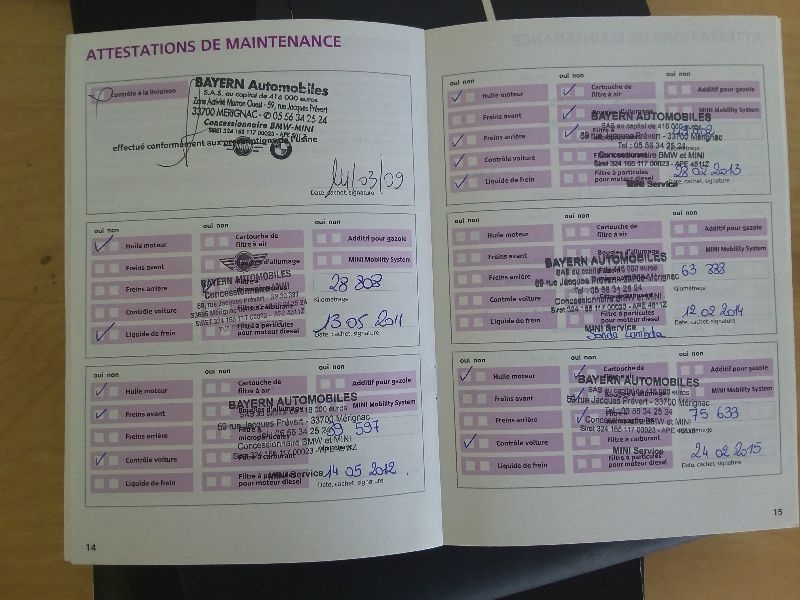 ATTESTATIONS DE MAINTENANCE
Contrôle à la livraison
BAYERN Automobiles
S.A.S. au capital de 416 000 euros
Zone Activité Mérignac Ouest - 59, rue Jacques Prévert
33700 MERIGNAC - 05 56 34 25 24
Concessionnaire BMW-MINI
SIRET 324 165 117 00023 - APE
effectué conformément aux de l'usine
14/03/09
Date, cachet, signature
oui non oui non oui non
Huile moteur Cartouche de filtre à air Additif pour gazole
Freins avant Bougies d'allumage MINI Mobility System
BAYERN AUTOMOBILES
Freins arrière Concessionnaire 28 808
Kilométrage
Contrôle voiture Filtre à carburant
SIRET 324 165 117 00023 - APE
13 05 2011
Liquide de frein Filtre à particules pour moteur diesel Date, cachet, signature
oui non oui non oui non
Huile moteur Cartouche de filtre à air Additif pour gazole
BAYERN AUTOMOBILES
Freins avant Bougies d'allumage MINI Mobility System
SAS au capital de 416 000 euros
59 rue Jacques Prévert - 33700 Mérignac
Freins arrière 05 56 34 25 24 597
Concessionnaire BMW et MINI
Contrôle voiture Filtre à carburant
Siret 324 165 117 00023
MINI Service 14 05 2012
Liquide de frein Filtre à particules pour moteur diesel Date, cachet, signature
14
oui non oui non oui non
Huile moteur Cartouche de filtre à air Additif pour gazole
Freins avant Bougies d'allumage MINI Mobility System
BAYERN AUTOMOBILES
SAS au capital de 416 000 euros
Freins arrière 59 rue Jacques Prévert - 33700 Mérignac
Tel : 05 56 34 25 24
Contrôle voiture Concessionnaire BMW et MINI
Siret 324 165 117 00023 - APE 4511Z
28 02 2013
Liquide de frein Filtre à particules pour moteur diesel Date, cachet, signature
MINI Service
oui non oui non oui non
Huile moteur Cartouche de filtre à air Additif pour gazole
Freins avant Bougies d'allumage MINI Mobility System
BAYERN AUTOMOBILES
SAS au capital de 416 000 euros
Freins arrière 59 rue Jacques Prévert - 33700 Mérignac 63 888
Tel : 05 56 34 25 24 Kilométrage
Contrôle voiture Concessionnaire BMW et MINI
Siret 324 165 117 00023 - APE 4511Z
12 02 2014
Liquide de frein MINI Service Date, cachet, signature
oui non oui non oui non
Huile moteur Cartouche de filtre à air Additif pour gazole
BAYERN AUTOMOBILES
SAS au capital de 416 000 euros
Freins avant MINI Mobility System
59 rue Jacques Prévert - 33700 Mérignac
Freins arrière Tel : 05 56 34 25 24 75 633
Concessionnaire BMW et MINI
Siret 324 165 117 00023 - APE
Contrôle voiture Filtre à carburant
MINI Service 24 02 2015
Liquide de frein Filtre à particules pour moteur diesel Date, cachet, signature
15